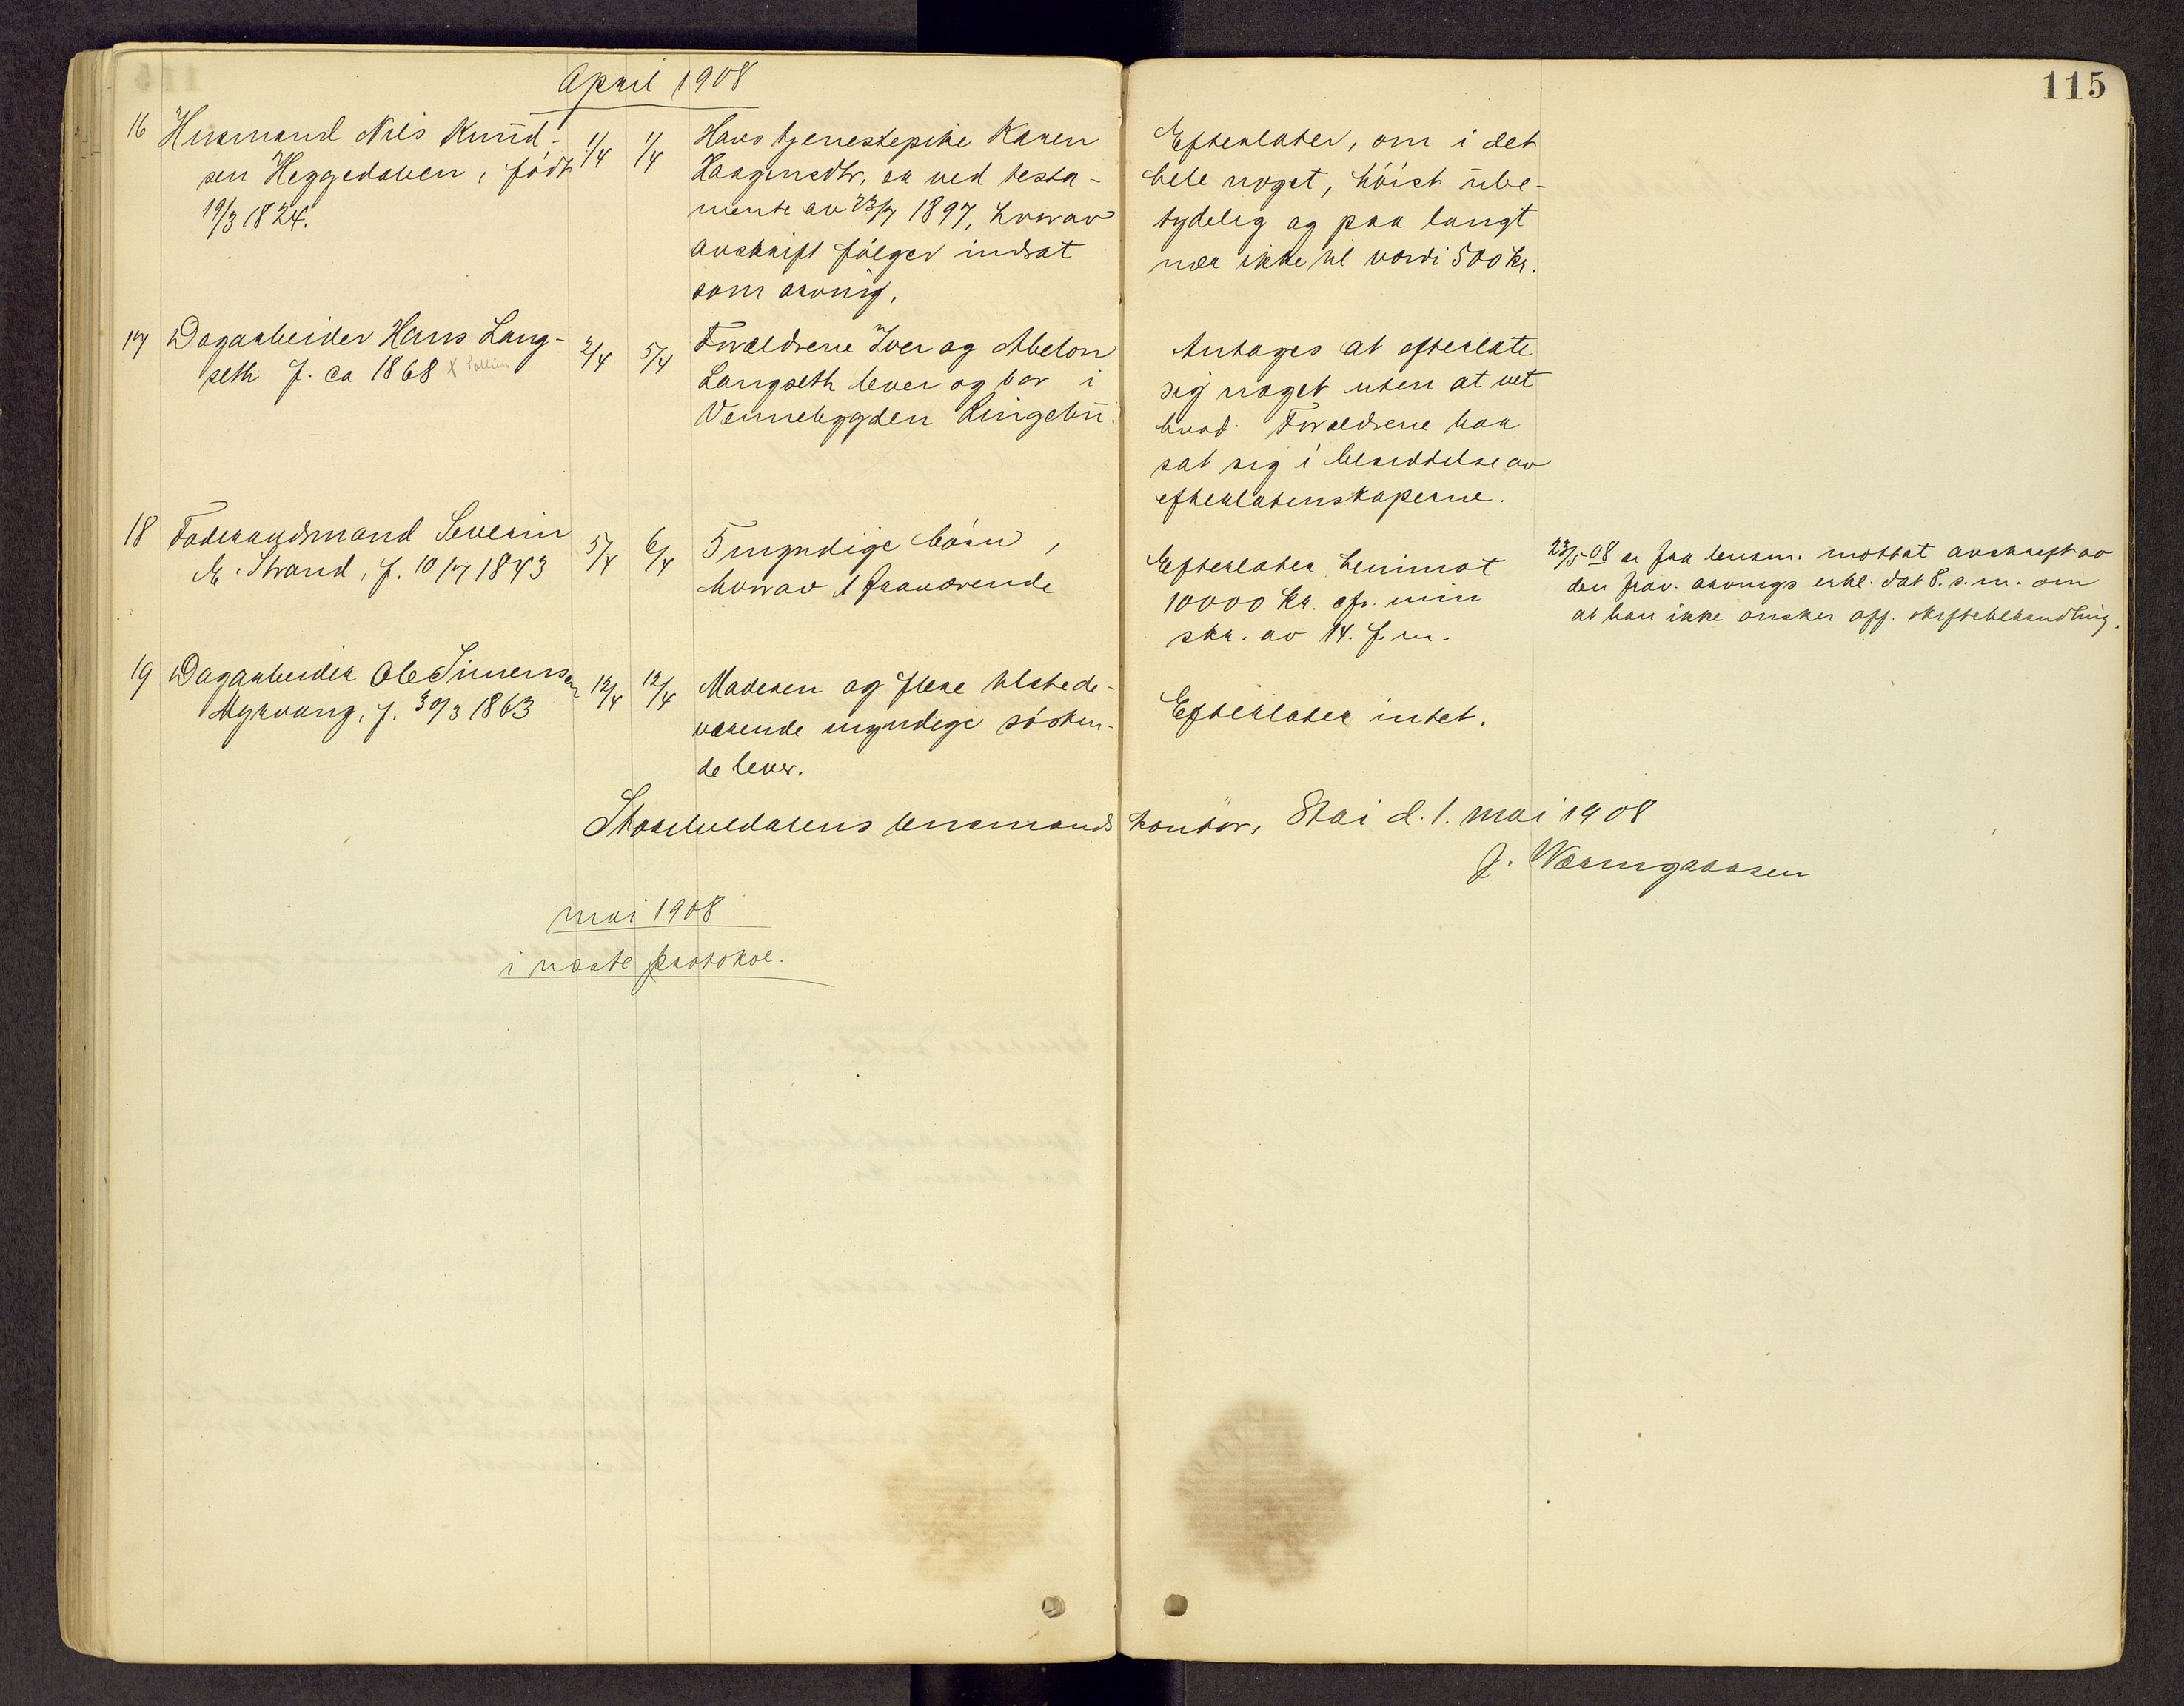 April 1908
115
16 Husmand Nils Knud-
sen Heggedalen, født
19/3 1824.
1/4 1/4
Hans tjenestepike Karen
Haagensdtr. er ved testa-
mente av 23/7 1897, hvorav
avskrift følger indsat
som arving.
Efterlater, om i det
hele noget, høist ube-
tydelig og paa langt
nær ikke til værdi 500 kr.
17 Dagarbeider Hans Lang-
seth f. ca 1868 X
2/4 5/4
Forældrene Iver og Abelon
Langseth lever og bor i
Vennebygden Ringebu.
Antages at efterlate
sig noget uten at vet
hvad. Forældrene har
sat sig i besiddelse av
efterlatenskaperne.
18 Føderaadsmand Severin
E. Strand, f. 10/7 1843
5/4 6/4
5 myndige børn,
hvorav 1 fraværende
Efterlater henimot
10000 kr. cfr. min
skr. av 14. f.m.
23/5-08 er fra lensm. mottat avskrift av
den frav. arvings erkl. dat 8. s.m. om
at han ikke ønsker off. skiftebehandling.
19 Dagarbeider Ole Simensen
Myrvang, f. 30/3 1863
12/4 12/4
Moderen og flere tilstede-
værende myndige søsken-
de lever.
Efterlater intet.
Storelvedalens lensmandskontor, Stai d. 1. mai 1908
J. Wærmgaarsen
mai 1908
i næste protokol.